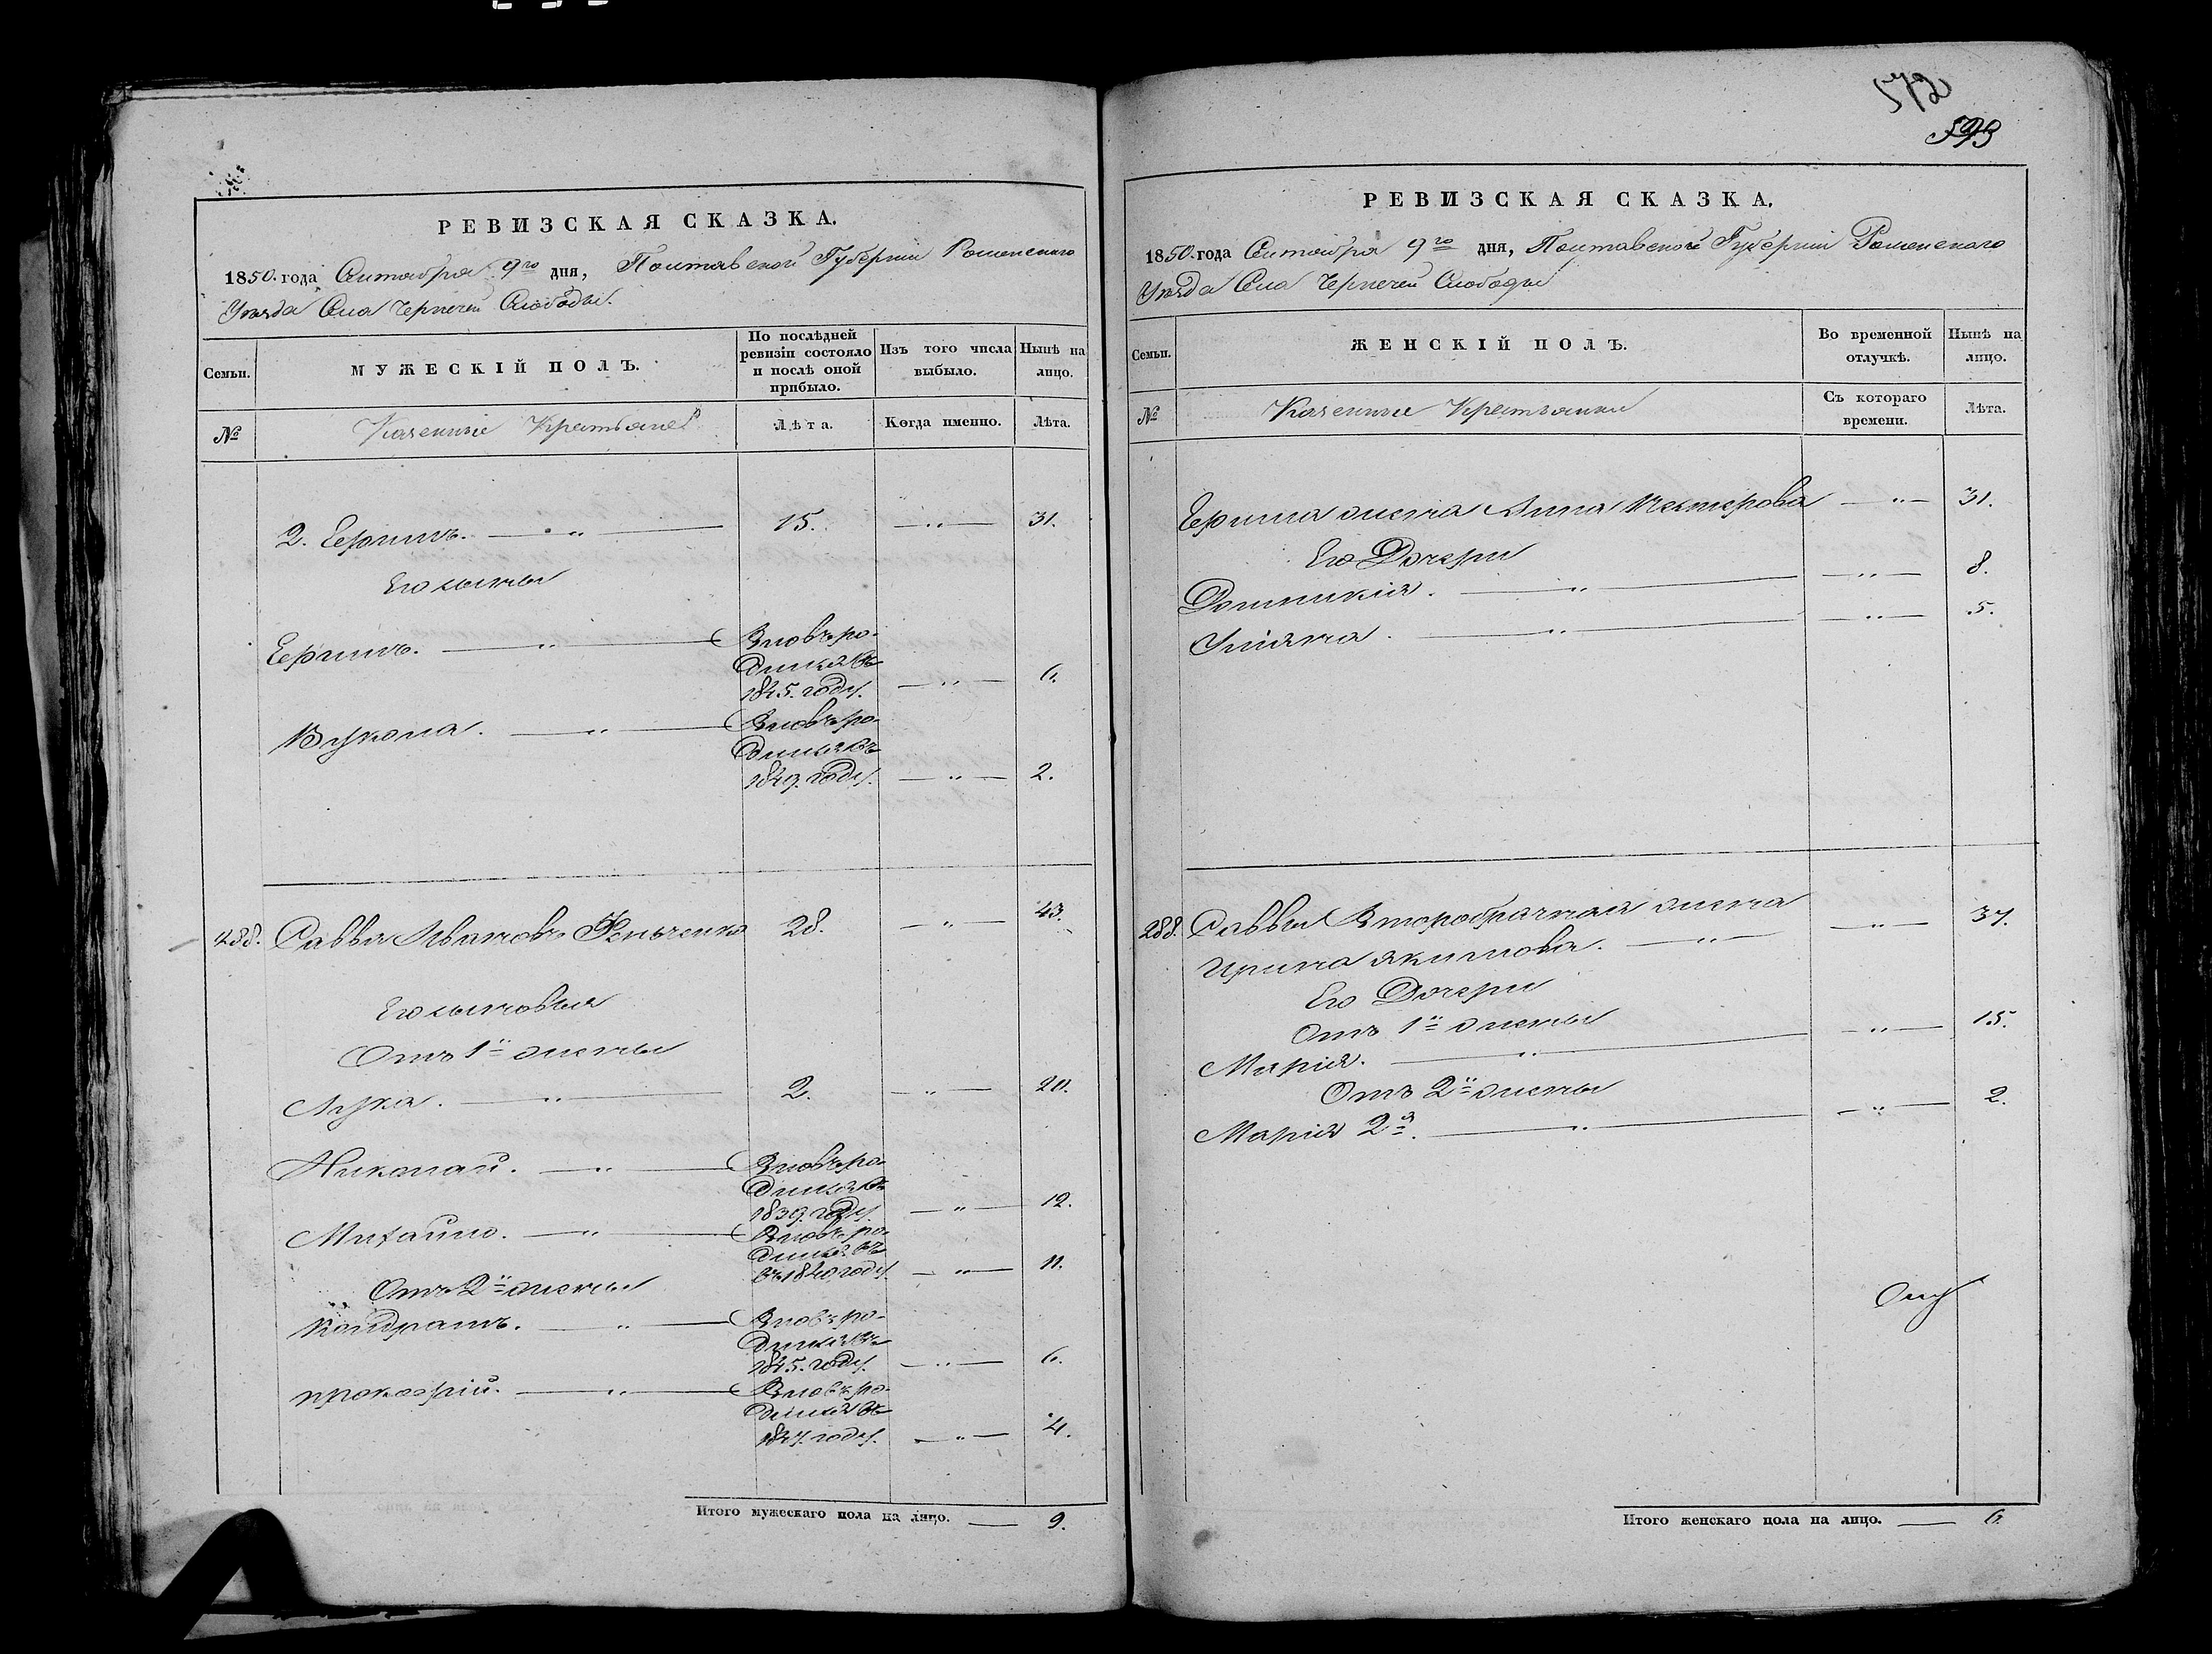 РЕВИЗСКАЯ СКАЗКА.
1850. года Сентября 9го дня, Полтавской Губернии Роменского
Уезда Села Чернечей Слободы.
Семьи.
МУЖЕСКІЙ ПОЛЪ.
По послѣдней ревизіи состояло и послѣ оной прибыло.
Изъ того числа выбыло.
Нынѣ на лицо.
№
Казенные Крестьяне
Лѣта.
Когда именно.
Лѣта.
2. — " — 15. — " — 31.
Его сыны
— " — Вновь ро-
дился въ
1845. году. — " — 6.
Вукола. — " — Вновь ро-
дился въ
1849. году. — " — 2.
288. Савва Ивановъ 28. — " — 43.
Его сыновья
Отъ 1й жены
Лука. — " — 2. — " — 20.
Николай. — " — Вновь ро-
дился въ
1839. году. — " — 12.
Михайло. — " — Вновь ро-
дился въ
въ 1840 году. — " — 11.
Отъ 2й жены
Кондратъ. — " — Вновь ро-
дился въ
1845. году. — " — 6.
Прокофій. — " — Вновь ро-
дился въ
1847. году. — " — 4.
Итого мужескаго пола на лицо. — 9.
572
593
РЕВИЗСКАЯ СКАЗКА.
1850. года Сентября 9го дня, Полтавской Губернии Роменского
Уезда Села Чернечей Слободы
Семьи.
ЖЕНСКІЙ ПОЛЪ.
Во временной отлучкѣ.
Нынѣ на лицо.
№
Казенные Крестьянки
Съ котораго времени.
Лѣта.
жена Анна Нестерова — " — 31.
Его Дочери
Домникія. — " — 8.
Уліяна. — " — 5.
288. Саввы Второбрачная жена
Ирина Якимова. — " — 37.
Его Дочери
Отъ 1й жены
Марія. — " — 15.
Отъ 2й жены
Марія 2я. — " — 2.
Итого женскаго пола на лицо. — 6.